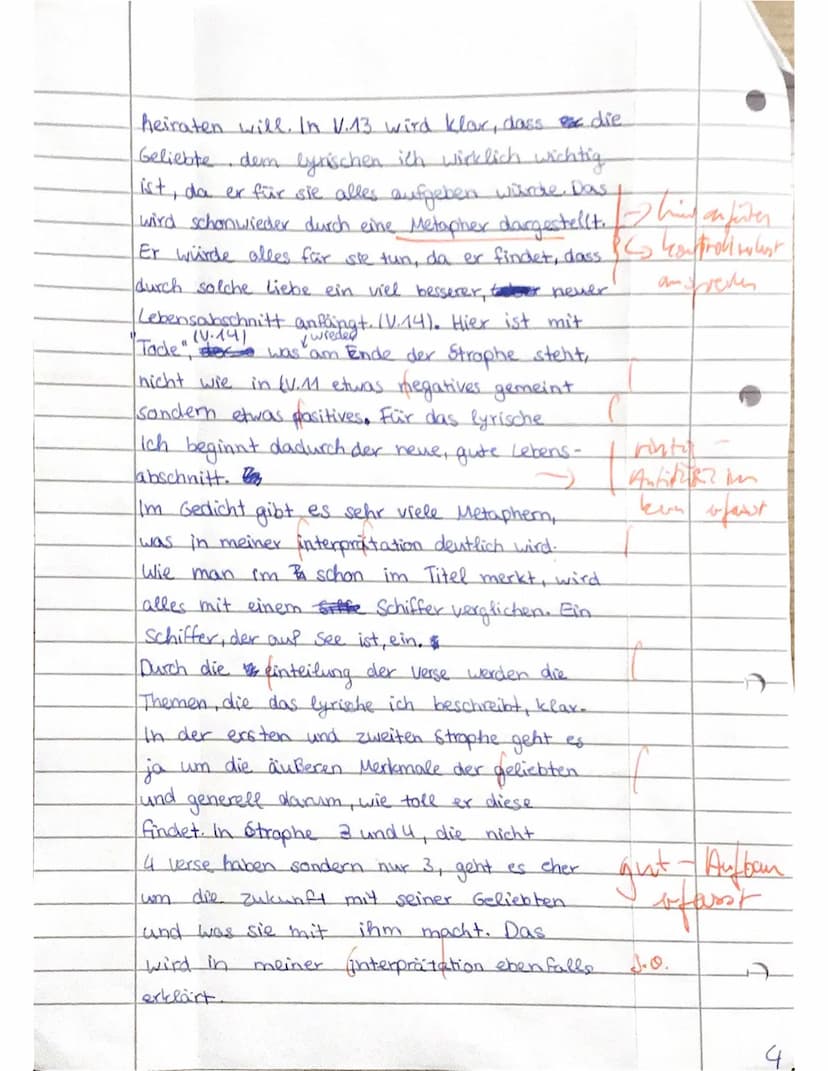 heiraten will. In V.13 wird klar, dass die
Geliebte, dem lyrischen ich wirklich wichtig
ist, da er für sie alles aufgeben würde. Das
wird schonwieder durch eine Metapher dargestellt.
Er würde alles für sie tun, da er findet, dass
durch solche Liebe ein viel besserer, neuer
Lebensabschnitt anfängt. (V.14). Hier ist mit
(V.14) wieder
"Tode", was am Ende der Strophe steht,
nicht wie in V.11 etwas negatives gemeint
sondern etwas positives. Für das lyrische
Ich beginnt dadurch der neue, gute Lebens-
abschnitt.
Im Gedicht gibt es sehr viele Metaphern,
was in meiner interprätation deutlich wird.
Wie man im schon im Titel merkt, wird
alles mit einem Schiffer verglichen. Ein
Schiffer, der auf See ist, ein.
Durch die einteilung der Verse werden die
Themen, die das lyrische ich beschreibt, klar.
In der ersten und zweiten Strophe geht es
ja um die äußeren Merkmale der geliebten
und generell darum, wie toll er diese
findet. In Strophe 3 und 4, die nicht
4 Verse haben sondern nur 3, geht es eher
um die Zukunft mit seiner Geliebten
und was sie mit ihm macht. Das
wird in meiner interprätation ebenfalls
erklärt.
gut - Aufbau
erfasst
s.o.
4